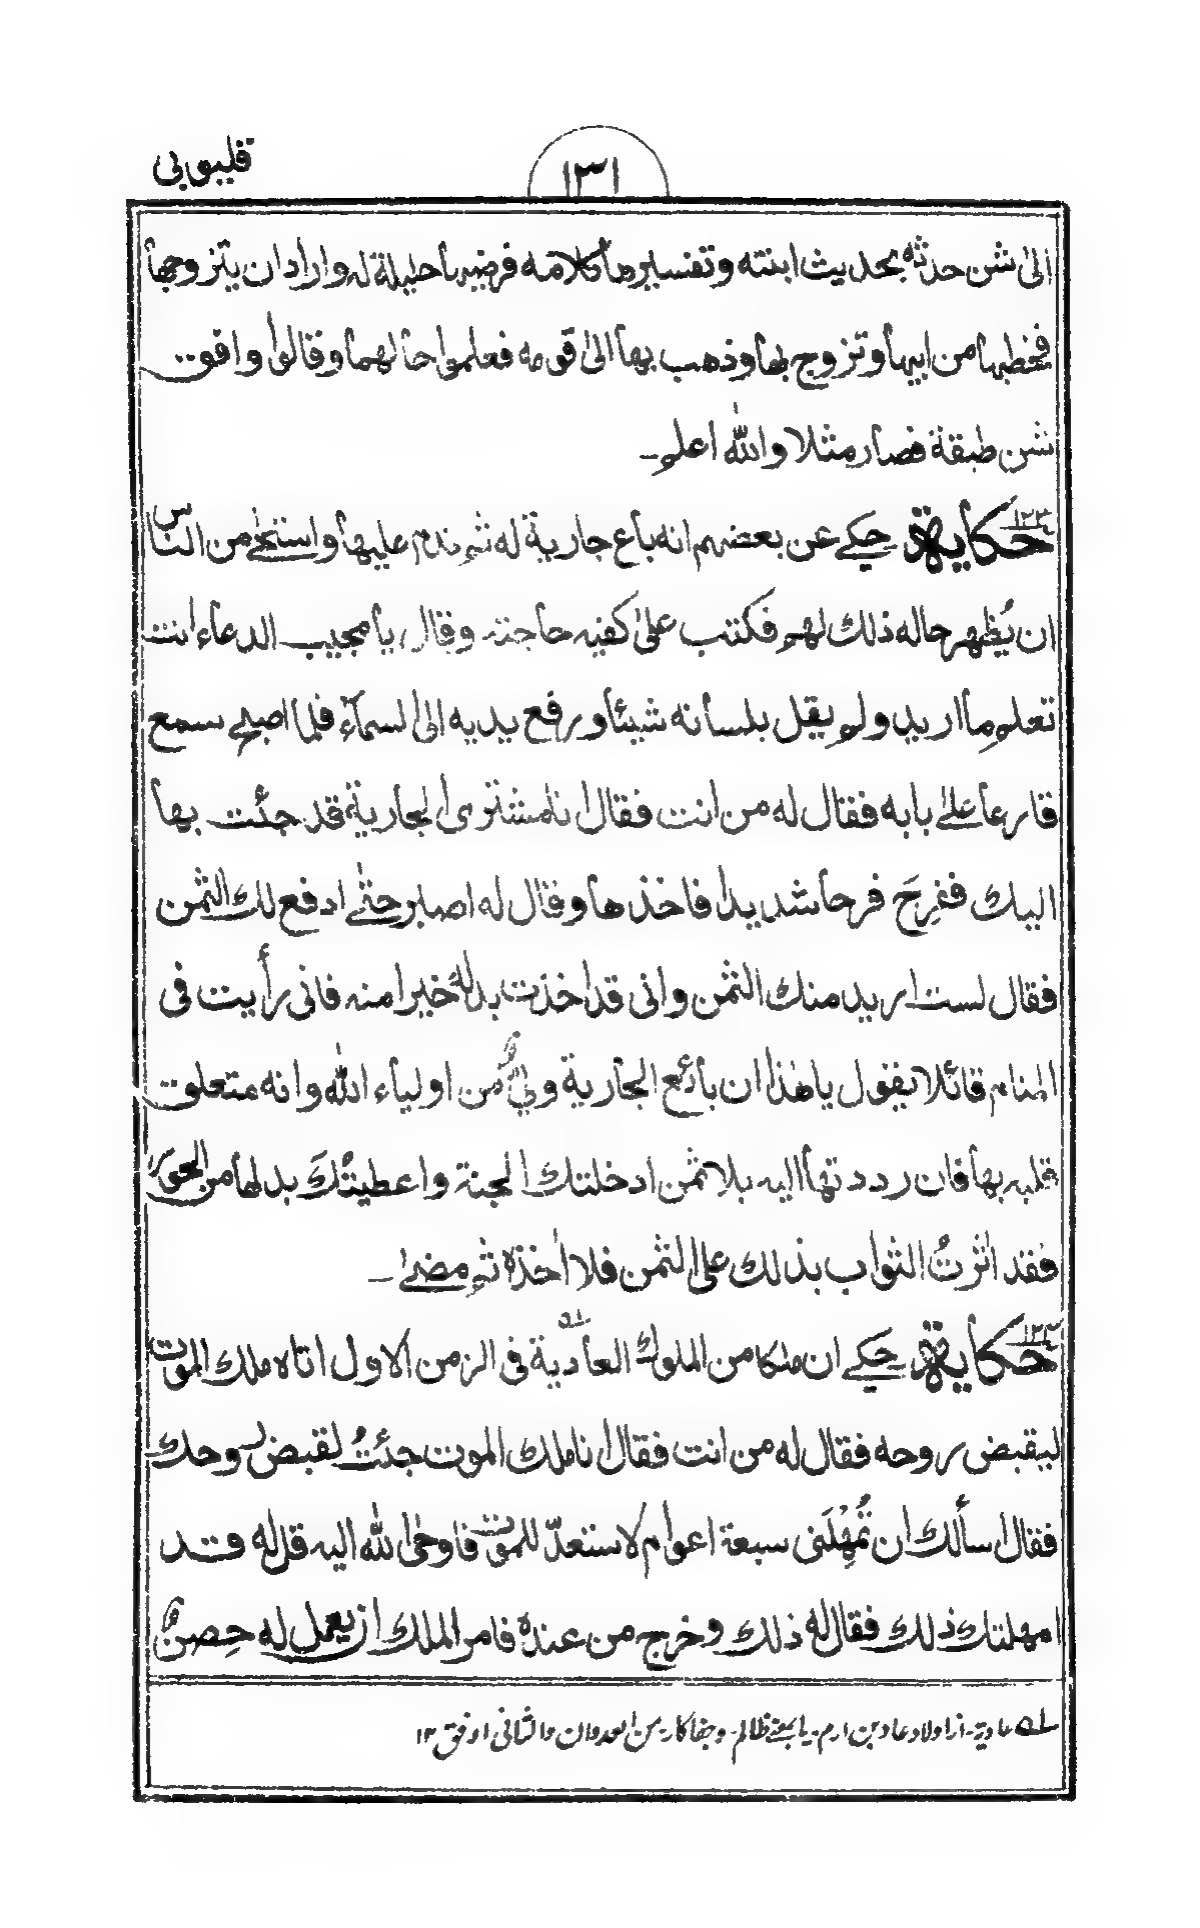 قليوبى
١٣١
الىٰ شن حدثه بحديث ابنته وتفسير ما كلامه فرضيها حليلة له واراد ان يتزوجها
فخطبها من ابيها وتزوج بها وذهب بها الىٰ قومه فعلموا حالهما وقالوا وافق
شن طبقة فصار مثلا والله اعلم۔
حكاية ١٢٣ حكى عن بعضهم انه باع جارية له ثم ندم عليها واستحىٰ من الناس
ان يُظهر حاله ذلك لهم فكتب علىٰ كفيه حاجته وقال يا مجيب الدعاء انت
تعلم ما اريد ولم يقل بلسانه شيئا ورفع يديه الى السماء فلما اصبح سمع
قارعا علىٰ بابه فقال له من انت فقال انا مشترى الجارية قد جئت بها
اليك ففرِحَ فرحا شديدا فاخذها وقال له اصبر حتىٰ ادفع لك الثمن
فقال لست اريد منك الثمن وانى قد اخذت بدله خيرا منه فانى رأيت فى
المنام قائلا يقول يا هٰذا ان بائع الجارية ولىٌّ من اولياء الله وانه متعلق
قلبه بها فان رددتها اليه بلا ثمن ادخلتك الجنة واعطيتُكَ بدلها من الحور
فقد اٰثرتُ الثواب بذلك على الثمن فلا اٰخذه ثم مضىٰ۔
حكاية ١٢٤ حكى ان ملكا من الملوك العادية له فى الزمن الاول اتاه ملك الموت
ليقبض روحه فقال له من انت فقال انا ملك الموت جئتُ لقبض روحك
فقال اسألك ان تُمْهِلَنى سبعة اعوام لاستعدّ للموت فاوحى الله اليه قل له قد
امهلتك ذلك فقال له ذلك وخرج من عنده فامر الملك ان يعمل له حِصنٌ
له عادية۔ از اولاد عاد بن ارم۔ يا بمعنے ظالم۔ وجفاكار۔ من العدوان والثانى اوفق ١٢